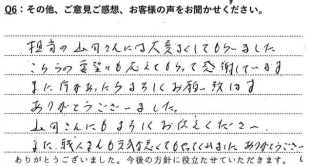 Q6：その他、ご意見ご感想、お客様の声をお聞かせください。
担当の山口さんには大変よくしてもらいました
こちらの要望にも応えてもらって感謝しています
また、何かあったらよろしくお願い致します
ありがとうございました
山口さんにもよろしくお伝えください
また、職人さんも元気な感じでやってくれました、ありがとうございました
ありがとうございました。今後の方針に役立たせていただきます。